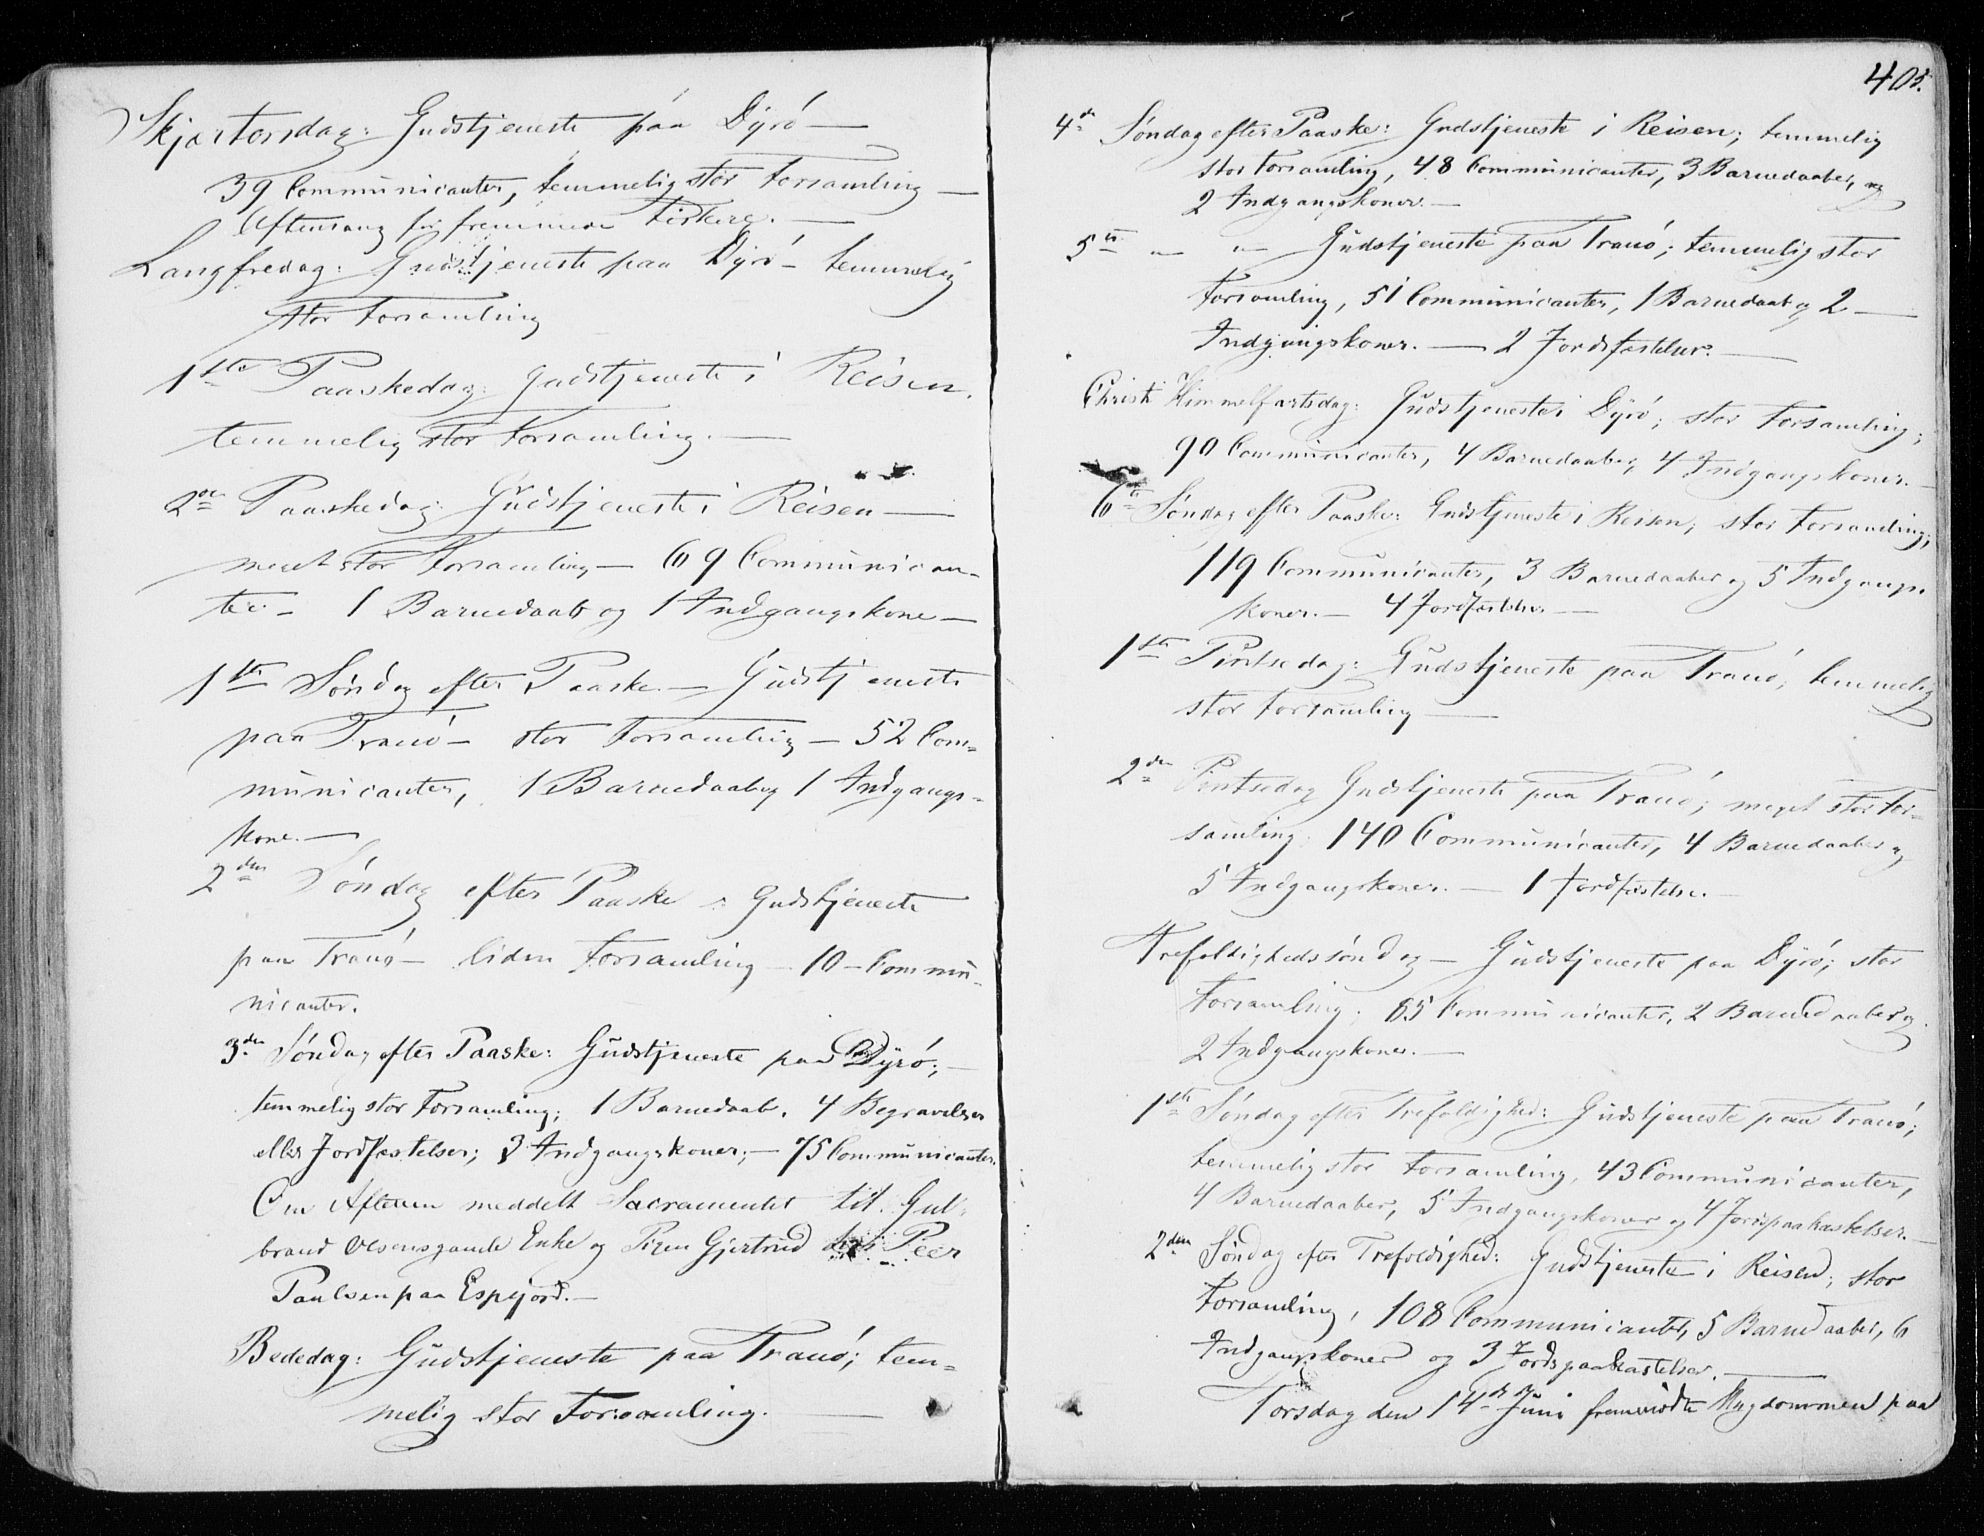 Skjærtorsdag: Gudstjeneste paa Dyrö —
39 Communicanter, temmelig stor Forsamling —
Aftensang for fremmede Fiskere. —
Langfredag: Gudstjeneste paa Dyrö – temmelig
stor Forsamling
1ste Paaskedag: Gudstjeneste i Reisen.
temmelig stor Forsamling. —
2den Paaskedag: Gudstjeneste i Reisen —
meget stor Forsamling — 69 Communican-
ter – 1 Barnedaab og 1 Indgangskone —
1ste Søndag efter Paaske — Gudstjeneste
paa Tranö – stor Forsamling — 52 Com-
municanter, 1 Barnedaab og 1 Indgangs-
kone. —
2den Söndag efter Paaske : Gudstjeneste
paa Tranö – liden Forsamling — 10 – Commu-
nicanter.
3die Søndag efter Paaske: Gudstjeneste paa Dyrö; —
temmelig stor Forsamling; 1 Barnedaab, 4 Begravelser
eller Jordfæstelser; 3 Indgangskoner; — 75 Communicanter.
Om Aftenen meddelt Sacramentet til Gul-
brand Olsens gamle Enke og Pigen Gjertrud hos Peer
Paulsen paa Espejord. —
Bededag: Gudstjeneste paa Tranö; tem-
melig stor Forsamling. —
403.
4de Søndag efter Paaske: Gudstjeneste i Reisen; temmelig
stor Forsamling, 48 Communicanter, 3 Barnedaaber, og
2 Indgangskoner. —
5te — " — Gudstjeneste paa Tranö; temmelig stor
Forsamling, 51 Communicanter, 1 Barnedaab og 2 —
Indgangskoner. — 2 Jordfæstelser. —
Christi Himmelfartsdag: Gudstjeneste i Dyrö; stor Forsamling;
90 Communicanter, 4 Barnedaaber, 4 Indgangskoner. —
6te Søndag efter Paaske: Gudstjeneste i Reisen; stor Forsamling;
119 Communicanter, 3 Barnedaaber og 5 Indgangs-
koner. — 4 Jordfæstelser —
1ste Pintsedag: Gudstjeneste paa Tranö; temmelig
stor Forsamling —
2den Pintsedag Gudstjeneste paa Tranö; meget stor For-
samling; 140 Communicanter, 4 Barnedaaber og
5 Indgangskoner. — 1 Jordfæstelse. —
Trefoldighedssöndag — Gudstjeneste paa Dyrö; stor
Forsamling; 65 Communicanter, 2 Barnedaaber og
2 Indgangskoner. —
1ste Søndag efter Trefoldighed: Gudstjeneste paa Tranö;
temmelig stor Forsamling, 43 Communicanter,
4 Barnedaaber, 5 Indgangskoner og 4 Jordspaakastelser. —
2den Søndag efter Trefoldighed: Gudstjeneste i Reisen; stor
Forsamling, 108 Communicanter, 5 Barnedaaber, 6
Indgangskoner og 3 Jordspaakastelser. —
Torsdag den 14de Juni fremmödte Ungdommen paa